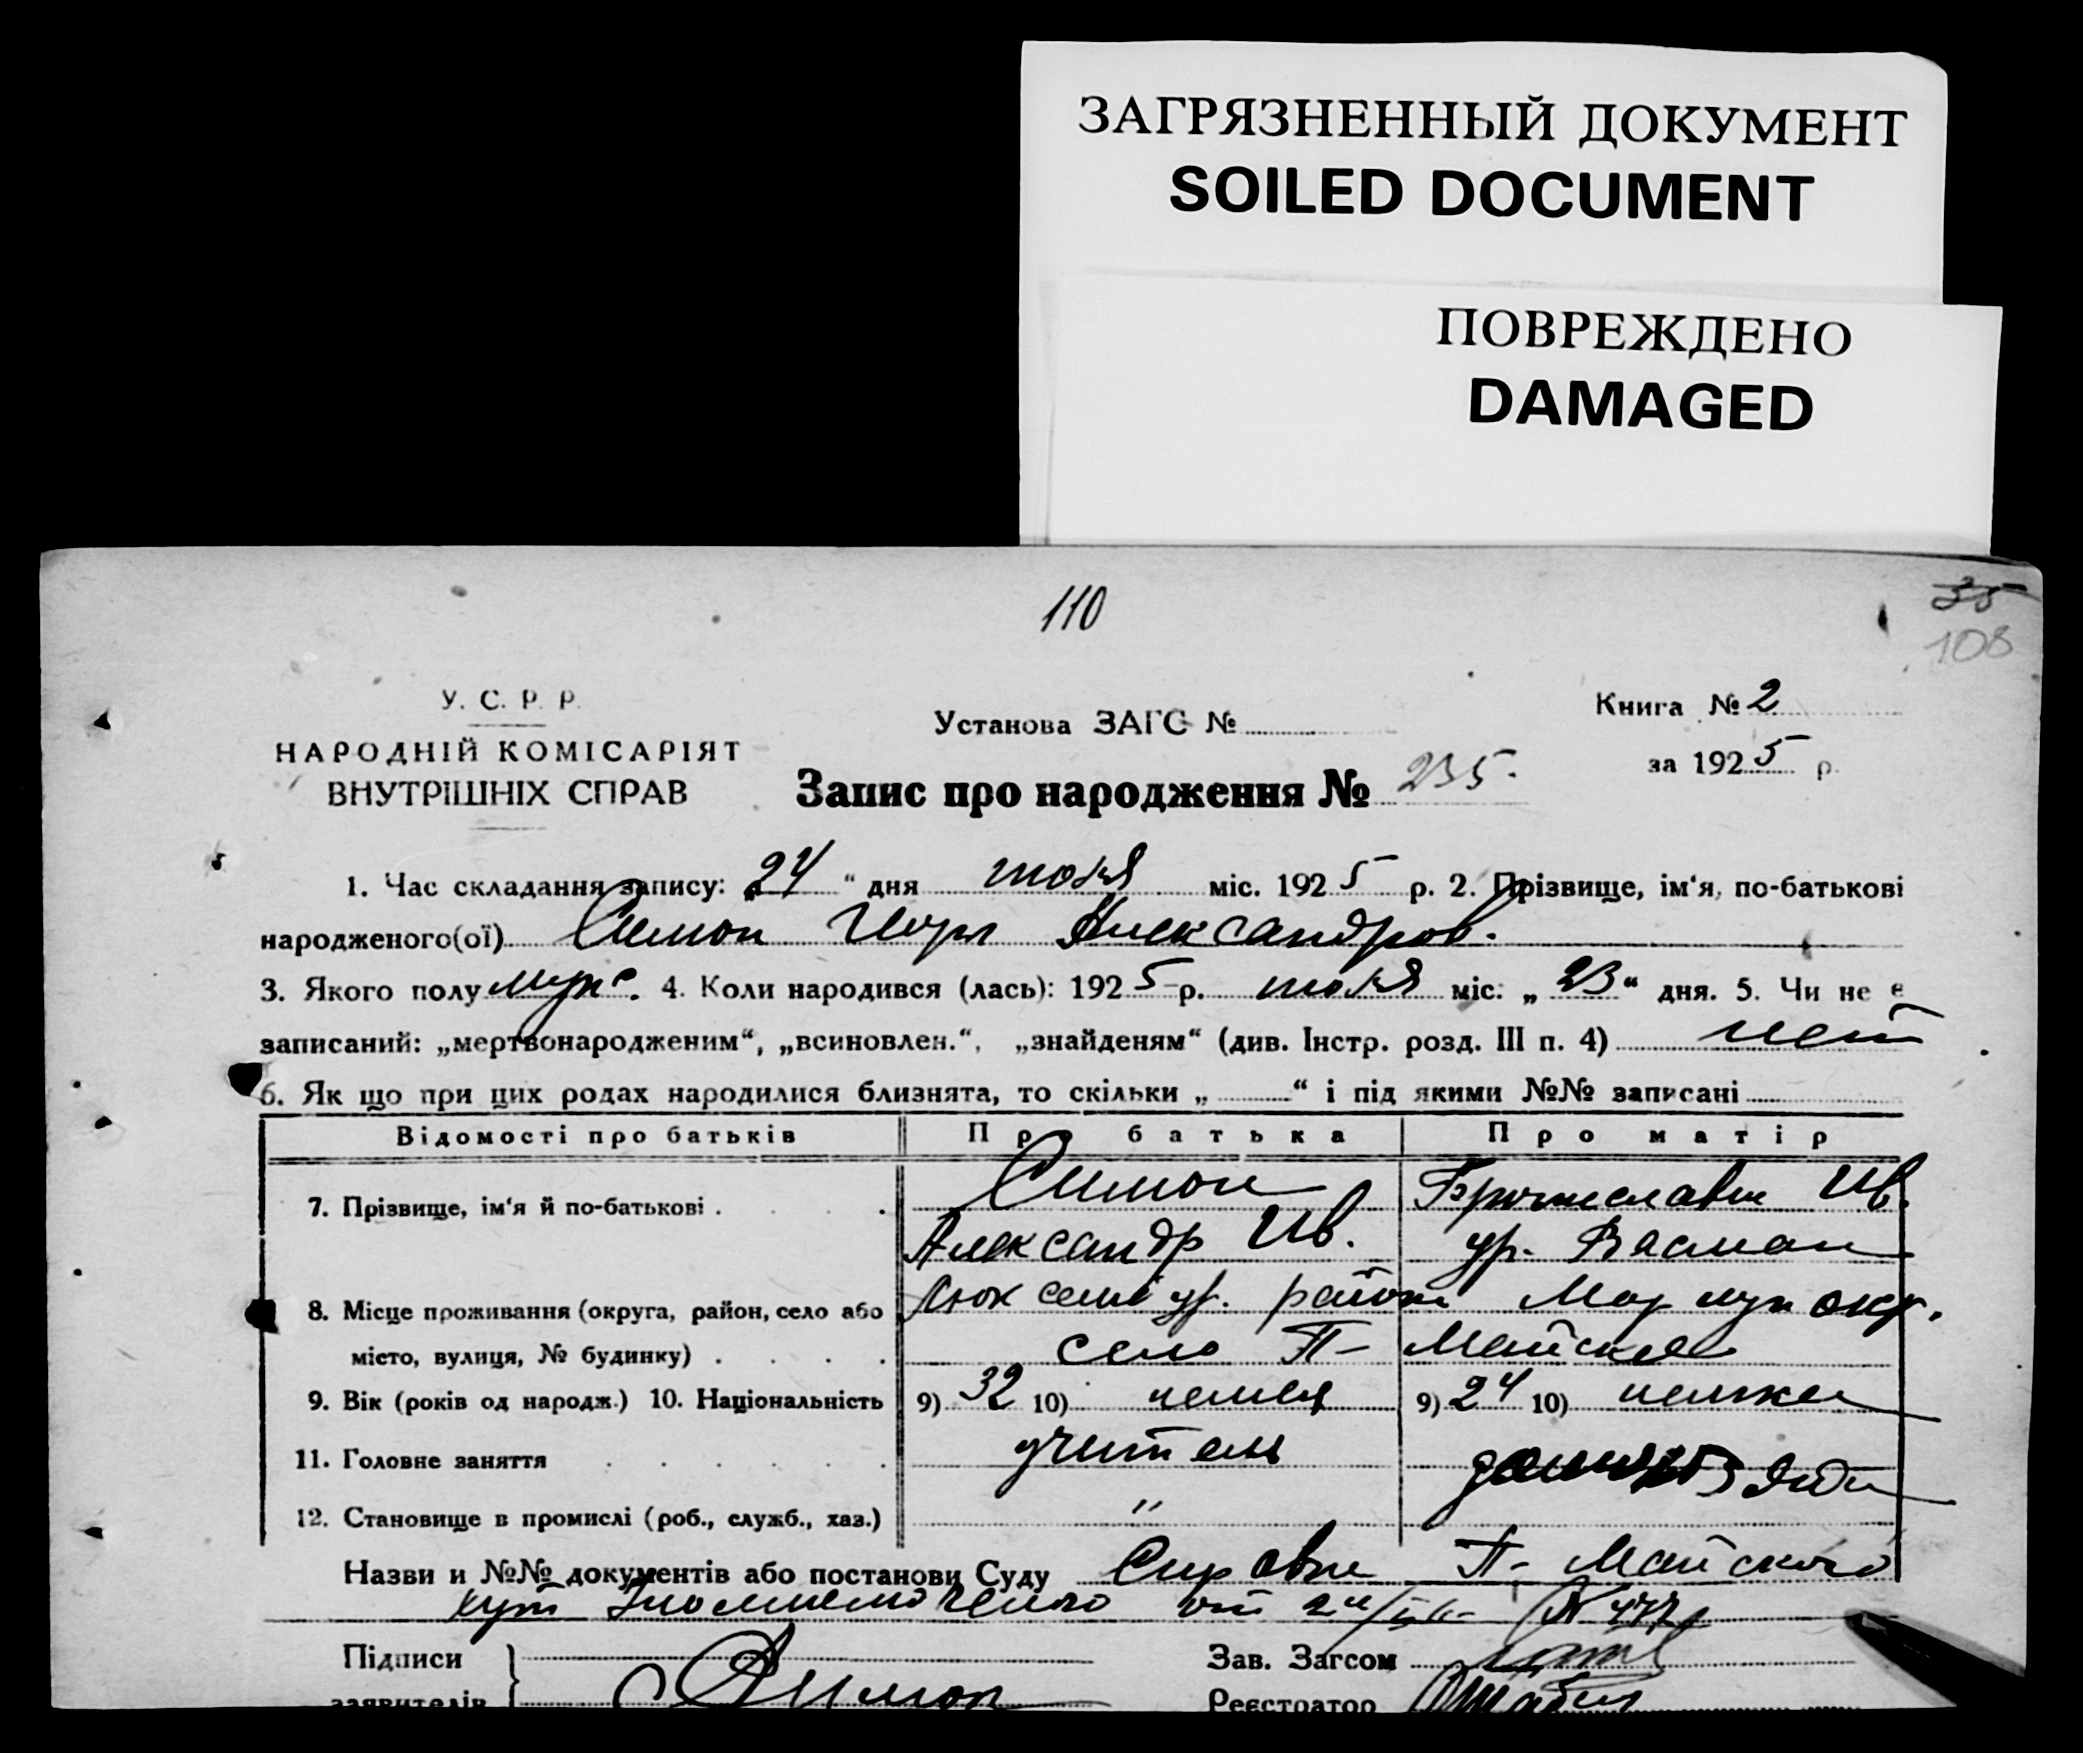 ЗАГРЯЗНЕННЫЙ ДОКУМЕНТ
SOILED DOCUMENT
ПОВРЕЖДЕНО
DAMAGED
110
35
108
У. С. Р. Р.
НАРОДНІЙ КОМІСАРІЯТ
ВНУТРІШНІХ СПРАВ
Установа ЗАГС №
Книга № 2
за 1925 р.
Запис про народження № 235.
1. Час складання запису: „24“ дня июля міс. 1925 р. 2. Прізвище, ім‘я, по-батькові
народженого(ої) Симон Игорь Александров.
3. Якого полу муж. 4. Коли народився (лась): 1925 р. июля міс. „23“ дня. 5. Чи не є
записаний: „мертвонародженим“, „всиновлен.“, „знайденям“ (див. Інстр. розд. III п. 4) нет
6. Як що при цих родах народилися близнята, то скільки „ “ і під якими №№ записані
Відомості про батьків Про батька Про матір
7. Прізвище, ім‘я й по-батькові . Симон Ив.
Александр Ив. ур. Васман
8. Місце проживання (округа, район, село або района окр.
місто, вулиця, № будинку) . село П- Майское
9. Вік (років од народж.) 10. Національність 9) 32 10) немец 9) 24 10) немка
11. Головне заняття учитель
12. Становище в промислі (роб., служб., хаз.) "
Назви и №№ документів або постанови Суду Справка П- Майского
от №
Підписи
заявителів Симон
Зав. Загсом
Реєстратор